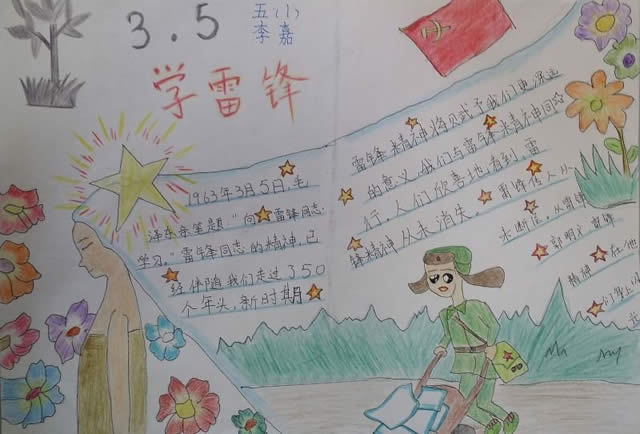 3.5
五(1)
李嘉
学雷锋
1963年3月5日,毛
泽东亲笔题"向雷锋同志
学习。"雷锋同志的精神,已
经伴随我们走过350
个年头,新时期
雷锋精神将赋予我们更深远
的意义,我们与雷锋精神同
行,人们欣喜地看到,雷
锋精神从未消失。雷锋传人从
未断
郭明义
精神 在他
们